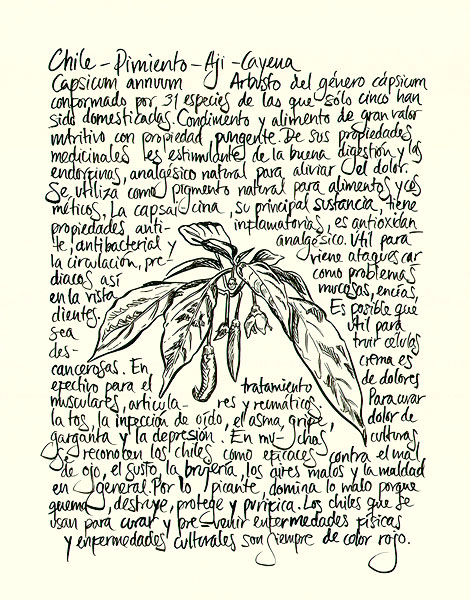 Chile - Pimiento - Aji - Cayena
Capsicum annuum Arbusto del género cápsicum
conformado por 31 especies de las que sólo cinco han
sido domesticadas. Condimento y alimento de gran valor
nutritivo con propiedad pungente. De sus propiedades
medicinales es estimulante de la buena digestión y las
endorfinas, analgésico natural para aliviar el dolor.
Se utiliza como pigmento natural para alimentos y cos
méticos. La capsai-cina, su principal sustancia, tiene
propiedades anti- inflamatorias, es antioxidan
te, antibacterial y analgésico. Útil para
la circulación, pre- viene ataques car
diacos así como problemas
en la vista mucosas, encías,
dientes. Es posible que
sea útil para
des- truir células
cancerosas. En crema es
efectivo para el tratamiento de dolores
musculares, articula- res y reumáticos. Para curar
la tos, la infección de oído, el asma, gripe, dolor de
garganta y la depresión. En mu-chas culturas
se reconocen los chiles como eficaces contra el mal
de ojo, el susto, la brujería, los aires malos y la maldad
en general. Por lo picante, domina lo malo porque
quema, destruye, protege y purifica. Los chiles que se
usan para curar y pre-venir enfermedades físicas
y enfermedades culturales son siempre de color rojo.